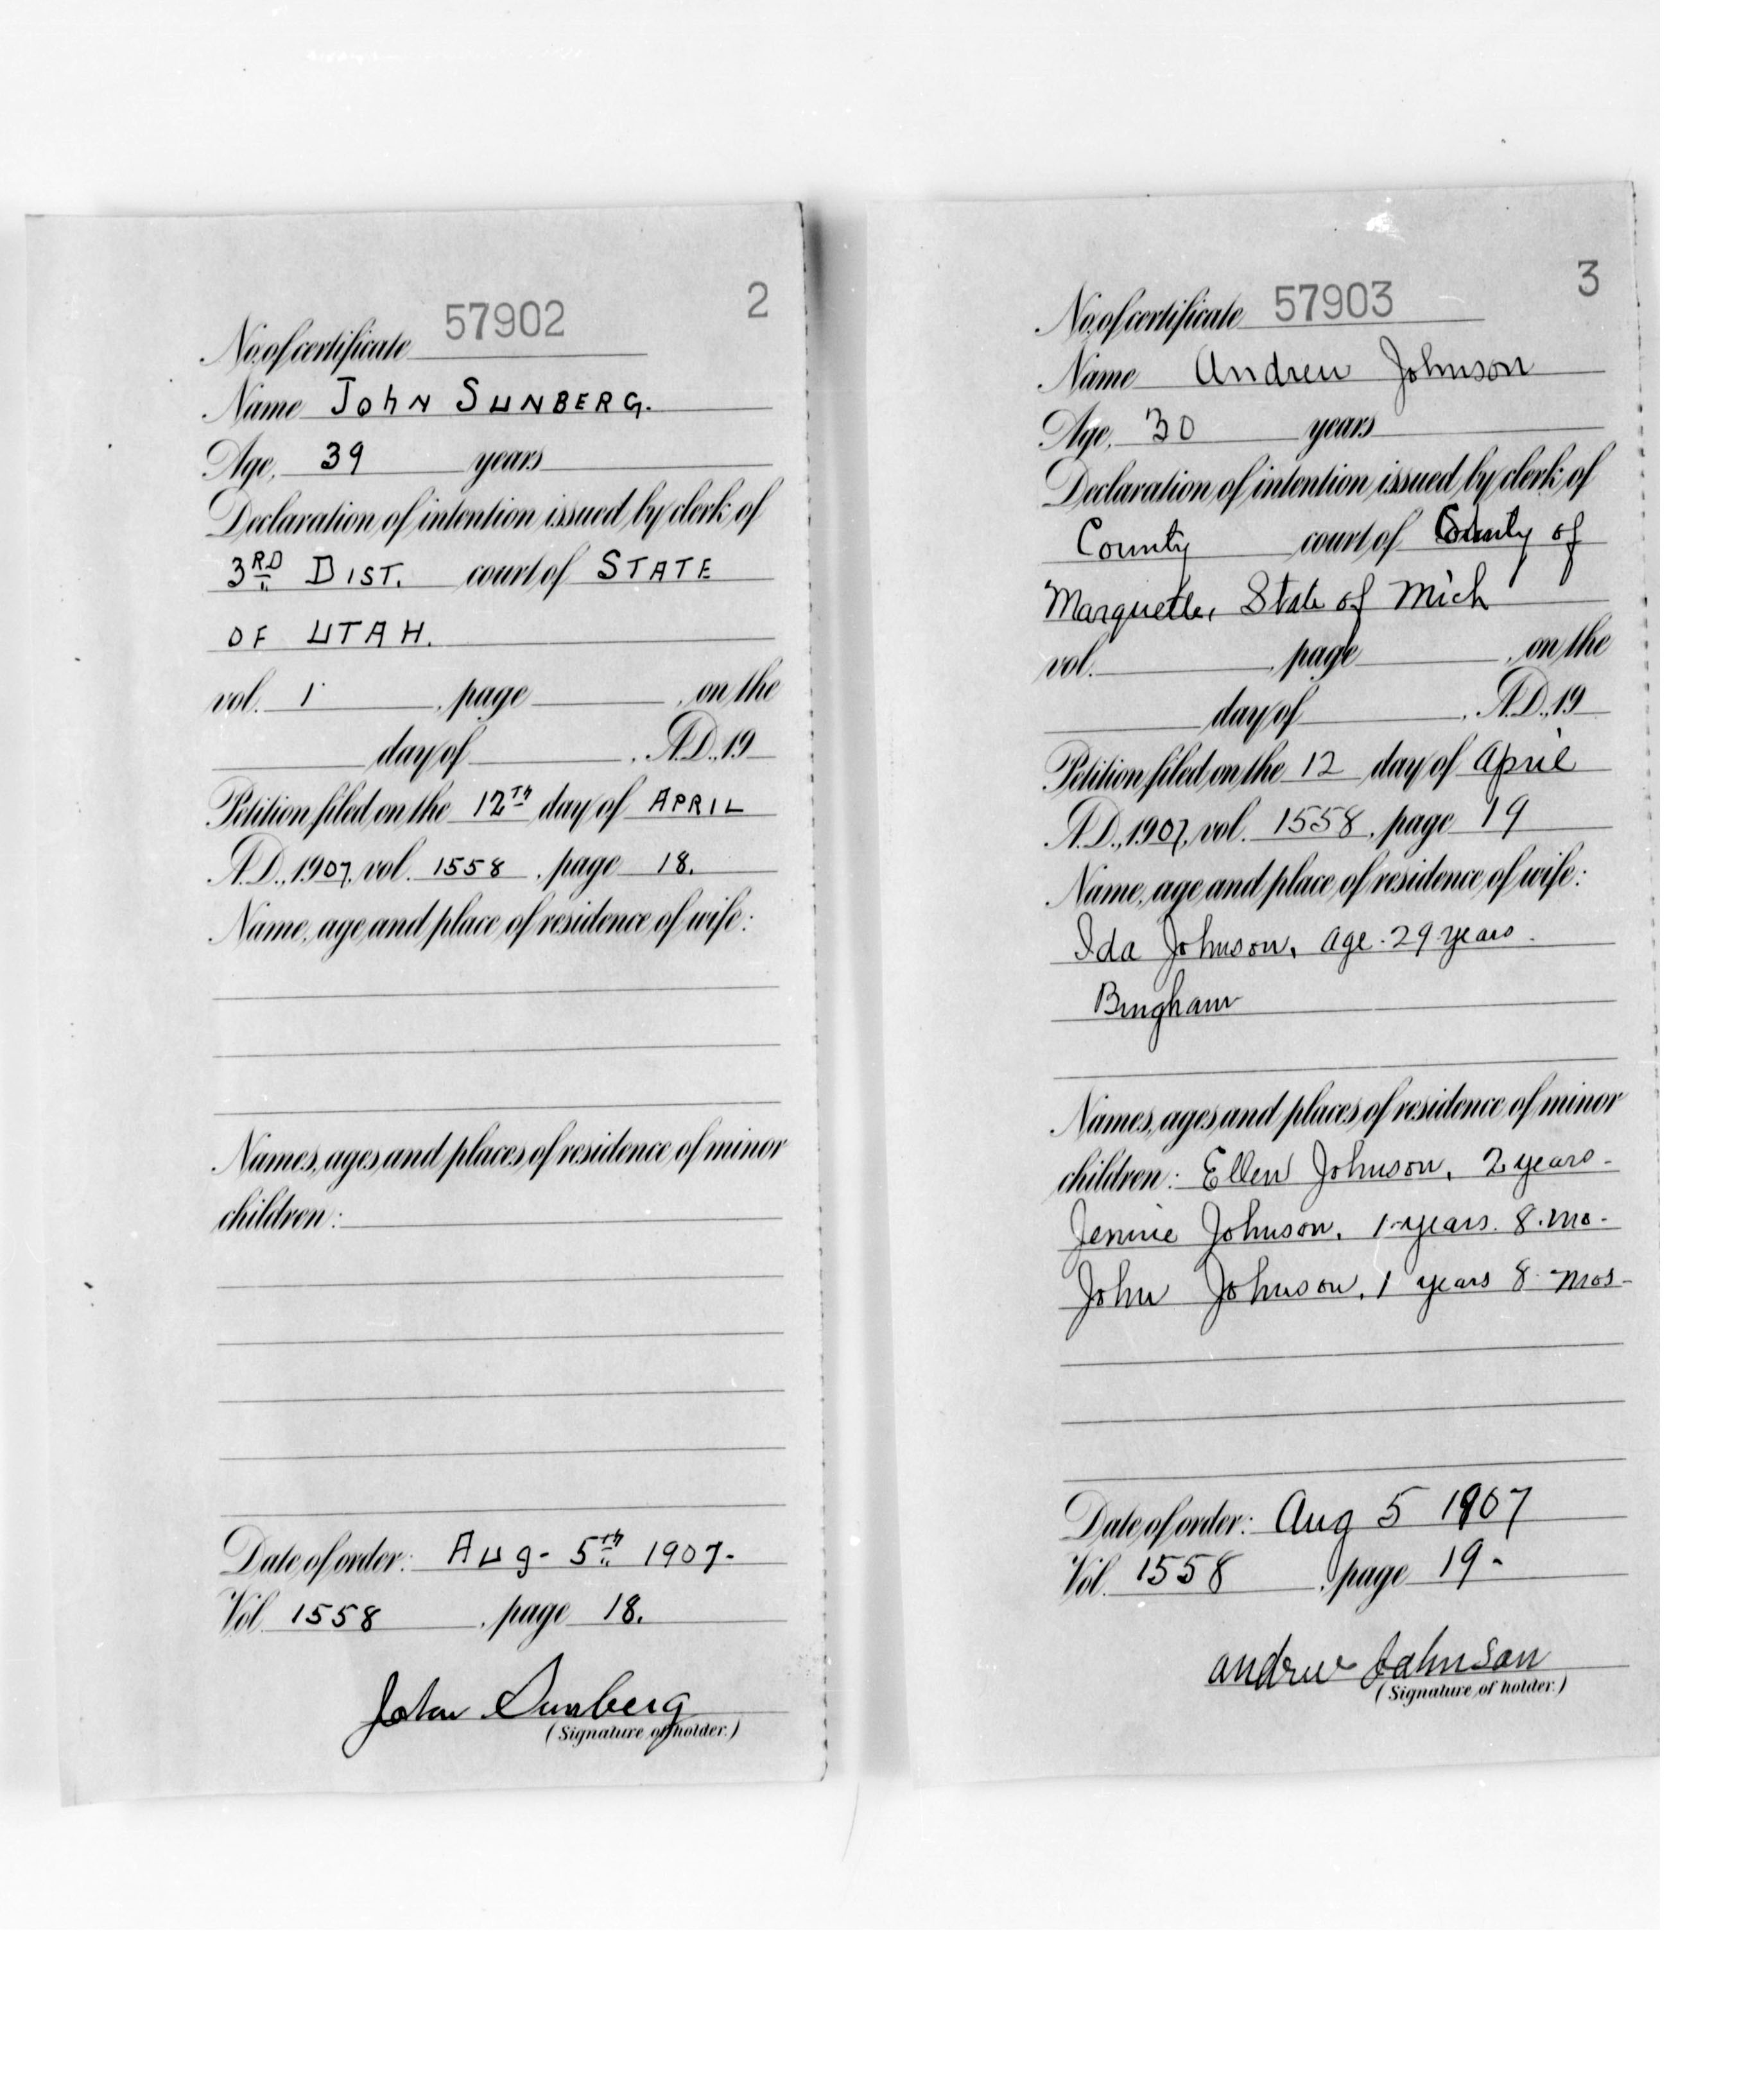 2
No. of certificate 57902
Name John Sunberg.
Age, 39 years
Declaration of intention issued by clerk of
3RD Dist. court of State
of Utah.
vol. 1 , page , on the
day of , A.D., 19
Petition filed on the 12th day of April
A.D., 1907, vol. 1558 , page 18.
Name, age and place of residence of wife:
Names, ages and places of residence of minor
children:
Date of order: Aug- 5th 1907-
Vol. 1558 , page 18.
John Sunberg
(Signature of holder.)
3
No. of certificate 57903
Name Andrew Johnson
Age, 30 years
Declaration of intention issued by clerk of
County court of County of
Marquette, State of Mich
vol. , page , on the
day of , A.D., 19
Petition filed on the 12 day of April
A.D., 1907, vol. 1558 , page 19
Name, age and place of residence of wife:
Ida Johnson, age 29 years
Bingham
Names, ages and places of residence of minor
children: Ellen Johnson, 2 years-
Jennie Johnson, 1 years. 8. mo-
John Johnson, 1 years 8 mos-
Date of order: Aug 5 1907
Vol. 1558 , page 19-
Andrew Johnson
(Signature of holder.)